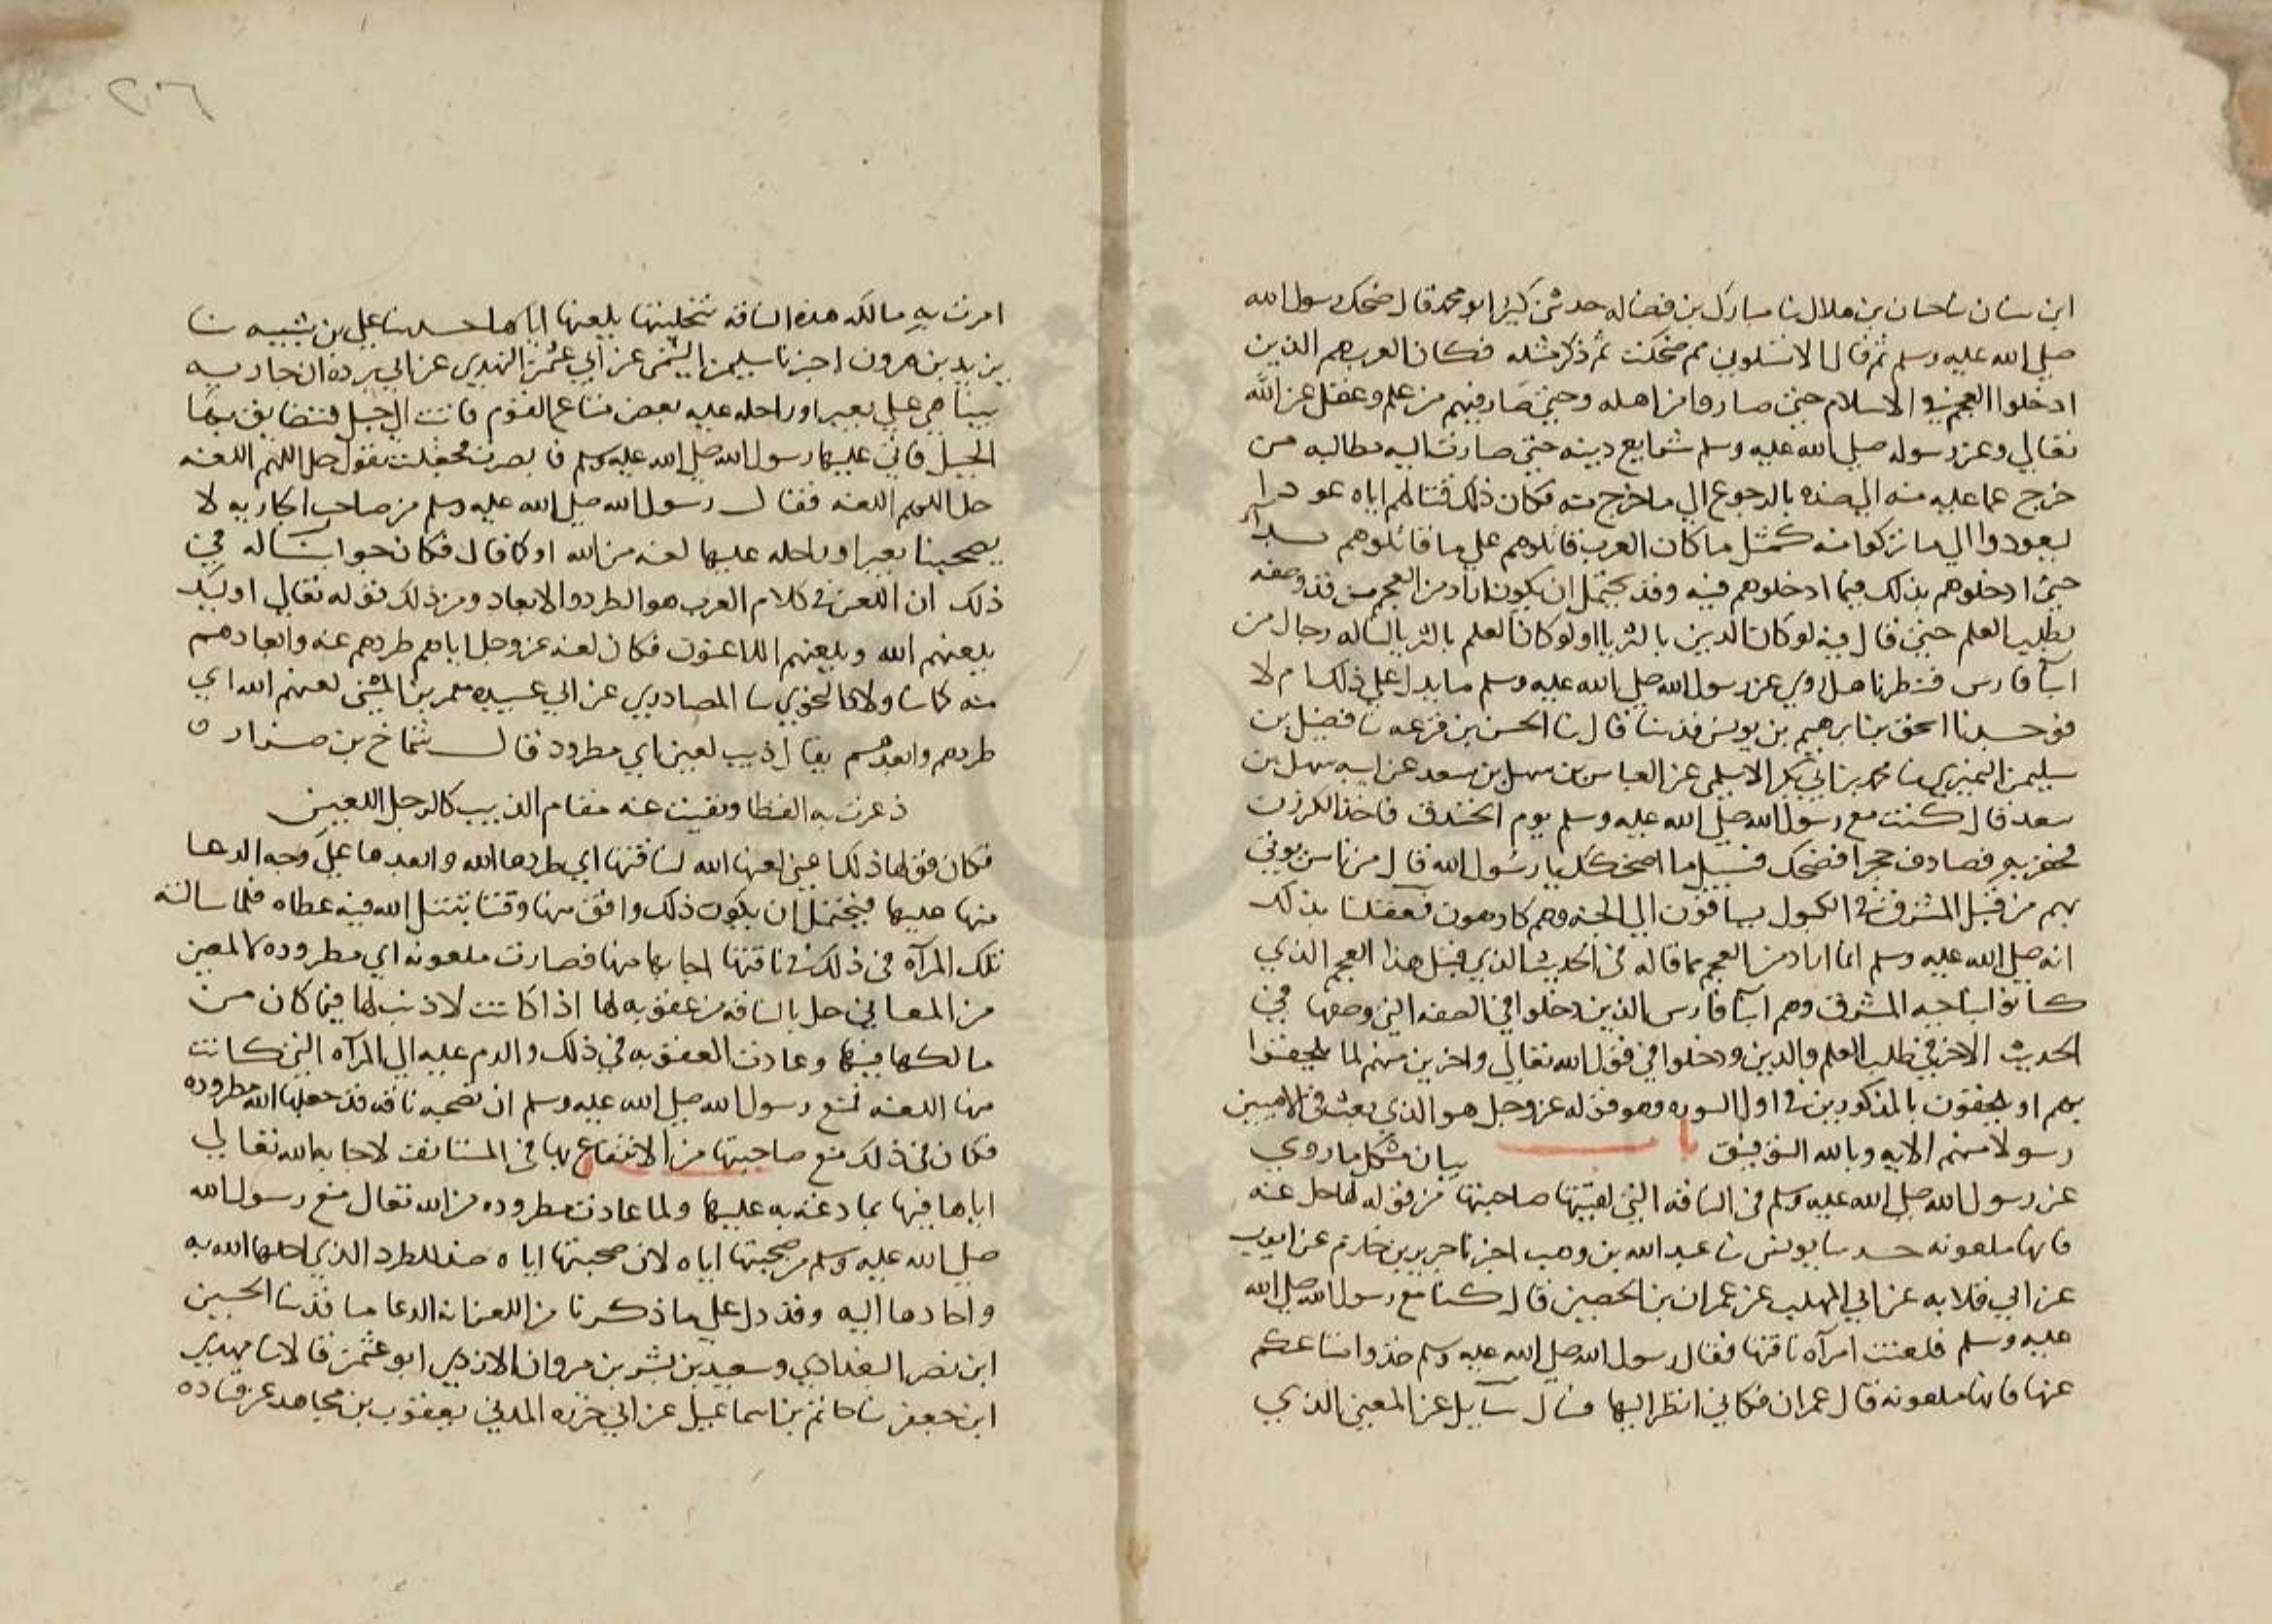 ابن سنان نا حبان بن هلال نا مبارك بن فضاله حدثني كثير ابو محمد قال ضحك رسول الله
صلى الله عليه وسلم ثم قال الا تسلوني مم ضحكت ثم ذكر مثله فكان العرب هم الذين
ادخلوا العجم في الاسلام حتى صاروا من اهله وحتى صار فيهم من علم وعقل عن الله
تعالى وعن رسوله صلى الله عليه وسلم شرايع دينه حتى صارت اليه مطالبه من
خرج عما عليه منه الى ضده بالرجوع الى ما خرج منه فكان ذلك قتالهم اياه عودا
ليعودوا الى ما تركوا منه كمثل ما كان العرب قاتلوهم على ما قاتلوهم بداء
حتى ادخلوهم بذلك فيما ادخلوهم فيه وقد يحتمل ان يكون اراد من العجم من قد وصفه
بطلب العلم حتى قال فيه لو كان الدين بالثريا او لو كان العلم بالثريا لناله رجال من
ابنآ فارس فنظرنا هل روي عن رسول الله صلى الله عليه وسلم ما يدل على ذلك ام لا
فوجدنا اسحق بن ابرهيم بن يونس قد نا قال نا الحسن بن قزعه نا فضيل بن
سليمن النميري نا محمد بن ابي بكر الاسلمي عن العباس بن سهل بن سعد عن ابيه سهل بن
سعد قال كنت مع رسول الله صلى الله عليه وسلم يوم الخندق فاخذ الكرزن
فحفر به فصادف حجرا فضحك فسيل ما اضحكك يا رسول الله قال من ناس يوتى
بهم من قبل المشرق في الكبول يساقون الى الجنه وهم كارهون فعقلنا بذلك
انه صلى الله عليه وسلم انما اراد من العجم بما قاله في الحديث الذي قبل هذا العجم الذي
كانوا بناحيه المشرق وهم ابنآ فارس الذين دخلوا في الصفه التي وصفها في
الحديث الاخر في طلب العلم والدين ودخلوا في قول الله تعالى واخرين منهم لما يلحقوا
بهم او يلحقون بالمذكورين في اول السوره وهو قوله عز وجل هو الذي بعث في الاميين
رسولا منهم الايه وبالله التوفيق با بيان مشكل ما روي
عن رسول الله صلى الله عليه وسلم في الناقه التي لعنتها صاحبتها من قوله لها حل عنه
فانها ملعونه حدثنا يونس نا عبد الله بن وهب اخبرنا جرير بن حازم عن ايوب
عن ابي قلابه عن ابي المهلب عن عمران بن الحصين قال كنا مع رسول الله صلى الله
عليه وسلم فلعنت امرآه ناقتها فقال رسول الله صلى الله عليه وسلم خذوا متاعكم
عنها فانها ملعونه قال عمران فكاني انظر اليها فسال سآيل عن المعنى الذي
٢٠٦
امرت به مالكه هذه الناقه بتخليتها بلعنها اياها حدثنا علي بن شيبه نا
يزيد بن هرون اخبرنا سليمن التيمي عن ابي عثمن النهدي عن ابي برده ان جاريه
بينا هي على بعير او راحله عليه بعض متاع القوم فاتت الى جبل فتضايق بها
الجبل فاتى عليها رسول الله صلى الله عليه وسلم فابصرته فجعلت تقول حل اللهم العنه
حل اللهم العنه فقال رسول الله صلى الله عليه وسلم من صاحب الجاريه لا
يصحبنا بعير او راحله عليها لعنه من الله او كما قال فكان جوابنا له في
ذلك ان اللعن في كلام العرب هو الطرد والابعاد ومن ذلك قوله تعالى اوليك
يلعنهم الله ويلعنهم اللاعنون فكان لعنه عز وجل اياهم طردهم عنه وابعادهم
منه كما نا ولاد النحوي نا المصادري عن ابي عبيده معمر بن المثنى لعنهم الله اي
طردهم وابعدهم يقال ذيب لعين اي مطرود قال شماخ بن ضرار ه
ذعرت به القطا ونفيت عنه مقام الذيب كالرجل اللعين
فكان قولها ذلك اعني لعنها الله لناقتها اي طردها الله وابعدها على وجه الدعا
منها عليها فيحتمل ان يكون ذلك وافق منها وقتا ينيل الله فيه عطاه فلما سالته
تلك المرآه في ذلك في ناقتها اجابها منها فصارت ملعونه اي مطروده لا لمعنى
من المعاني حل بالناقه من عقوبه لها اذا كانت لا ذنب لها فيما كان من
مالكها فيها وعادت العقوبه في ذلك والدم عليه الى المرآه التي كانت
منها اللعنه فمنع رسول الله صلى الله عليه وسلم ان تصحبه ناقه قد جعلها الله مطروده
فكان في ذلك منع صاحبتها من الانتفاع بها في المستانف لاجابه الله تعالى
اياها فيها بما دعته به عليها ولما عادت مطروده من الله تعالى منع رسول الله
صلى الله عليه وسلم من صحبتها اياه لان صحبتها اياه ضد للطرد الذي احلها الله به
واصارها اليه وقد دل على ما ذكرنا من اللعن انه الدعا ما قد نا الحسين
ابن نصر البغدادي وسعيد بن بشر بن مروان الازدي ابو عثمن قالا نا مهدي
ابن جعفر نا حاتم بن اسماعيل عن ابي حزره المدني يعقوب بن مجاهد عن عباده